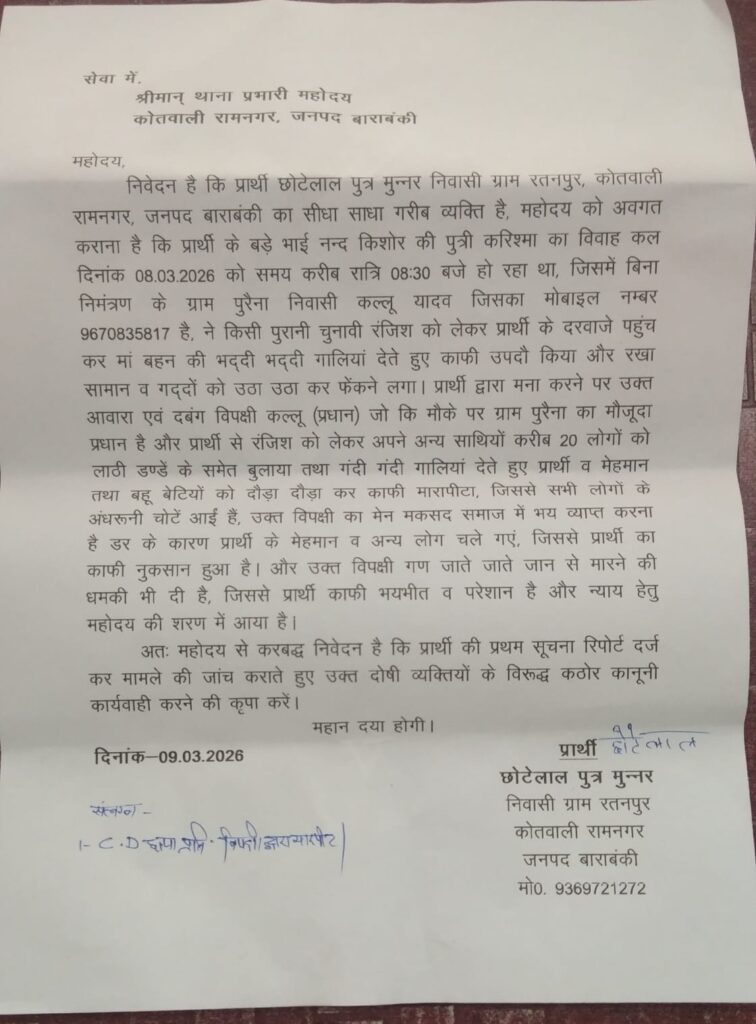 सेवा में,
श्रीमान् थाना प्रभारी महोदय
कोतवाली रामनगर, जनपद बाराबंकी
महोदय,
निवेदन है कि प्रार्थी छोटेलाल पुत्र मुन्नर निवासी ग्राम रतनपुर, कोतवाली
रामनगर, जनपद बाराबंकी का सीधा साधा गरीब व्यक्ति है, महोदय को अवगत
कराना है कि प्रार्थी के बड़े भाई नन्द किशोर की पुत्री करिश्मा का विवाह कल
दिनांक 08.03.2026 को समय करीब रात्रि 08:30 बजे हो रहा था, जिसमें बिना
निमंत्रण के ग्राम पुरैना निवासी कल्लू यादव जिसका मोबाइल नम्बर
9670835817 है, ने किसी पुरानी चुनावी रंजिश को लेकर प्रार्थी के दरवाजे पहुंच
कर मां बहन की भद्दी भद्दी गालियां देते हुए काफी उपदौ किया और रखा
सामान व गद्दों को उठा उठा कर फेंकने लगा। प्रार्थी द्वारा मना करने पर उक्त
आवारा एवं दबंग विपक्षी कल्लू (प्रधान) जो कि मौके पर ग्राम पुरैना का मौजूदा
प्रधान है और प्रार्थी से रंजिश को लेकर अपने अन्य साथियों करीब 20 लोगों को
लाठी डण्डें के समेत बुलाया तथा गंदी गंदी गालियां देते हुए प्रार्थी व मेहमान
तथा बहू बेटियों को दौड़ा दौड़ा कर काफी मारापीटा, जिससे सभी लोगों के
अंधरूनी चोटें आईं हैं, उक्त विपक्षी का मेन मकसद समाज में भय व्याप्त करना
है डर के कारण प्रार्थी के मेहमान व अन्य लोग चले गएं, जिससे प्रार्थी का
काफी नुकसान हुआ है। और उक्त विपक्षी गण जाते जाते जान से मारने की
धमकी भी दी है, जिससे प्रार्थी काफी भयभीत व परेशान है और न्याय हेतु
महोदय की शरण में आया है।
अतः महोदय से करबद्ध निवेदन है कि प्रार्थी की प्रथम सूचना रिपोर्ट दर्ज
कर मामले की जांच कराते हुए उक्त दोषी व्यक्तियों के विरूद्ध कठोर कानूनी
कार्यवाही करने की कृपा करें।
महान दया होगी।
दिनांक–09.03.2026
प्रार्थी छोटेलाल
छोटेलाल पुत्र मुन्नर
निवासी ग्राम रतनपुर
कोतवाली रामनगर
जनपद बाराबंकी
मो0. 9369721272
संलग्न –
1- C.D छाया प्रति